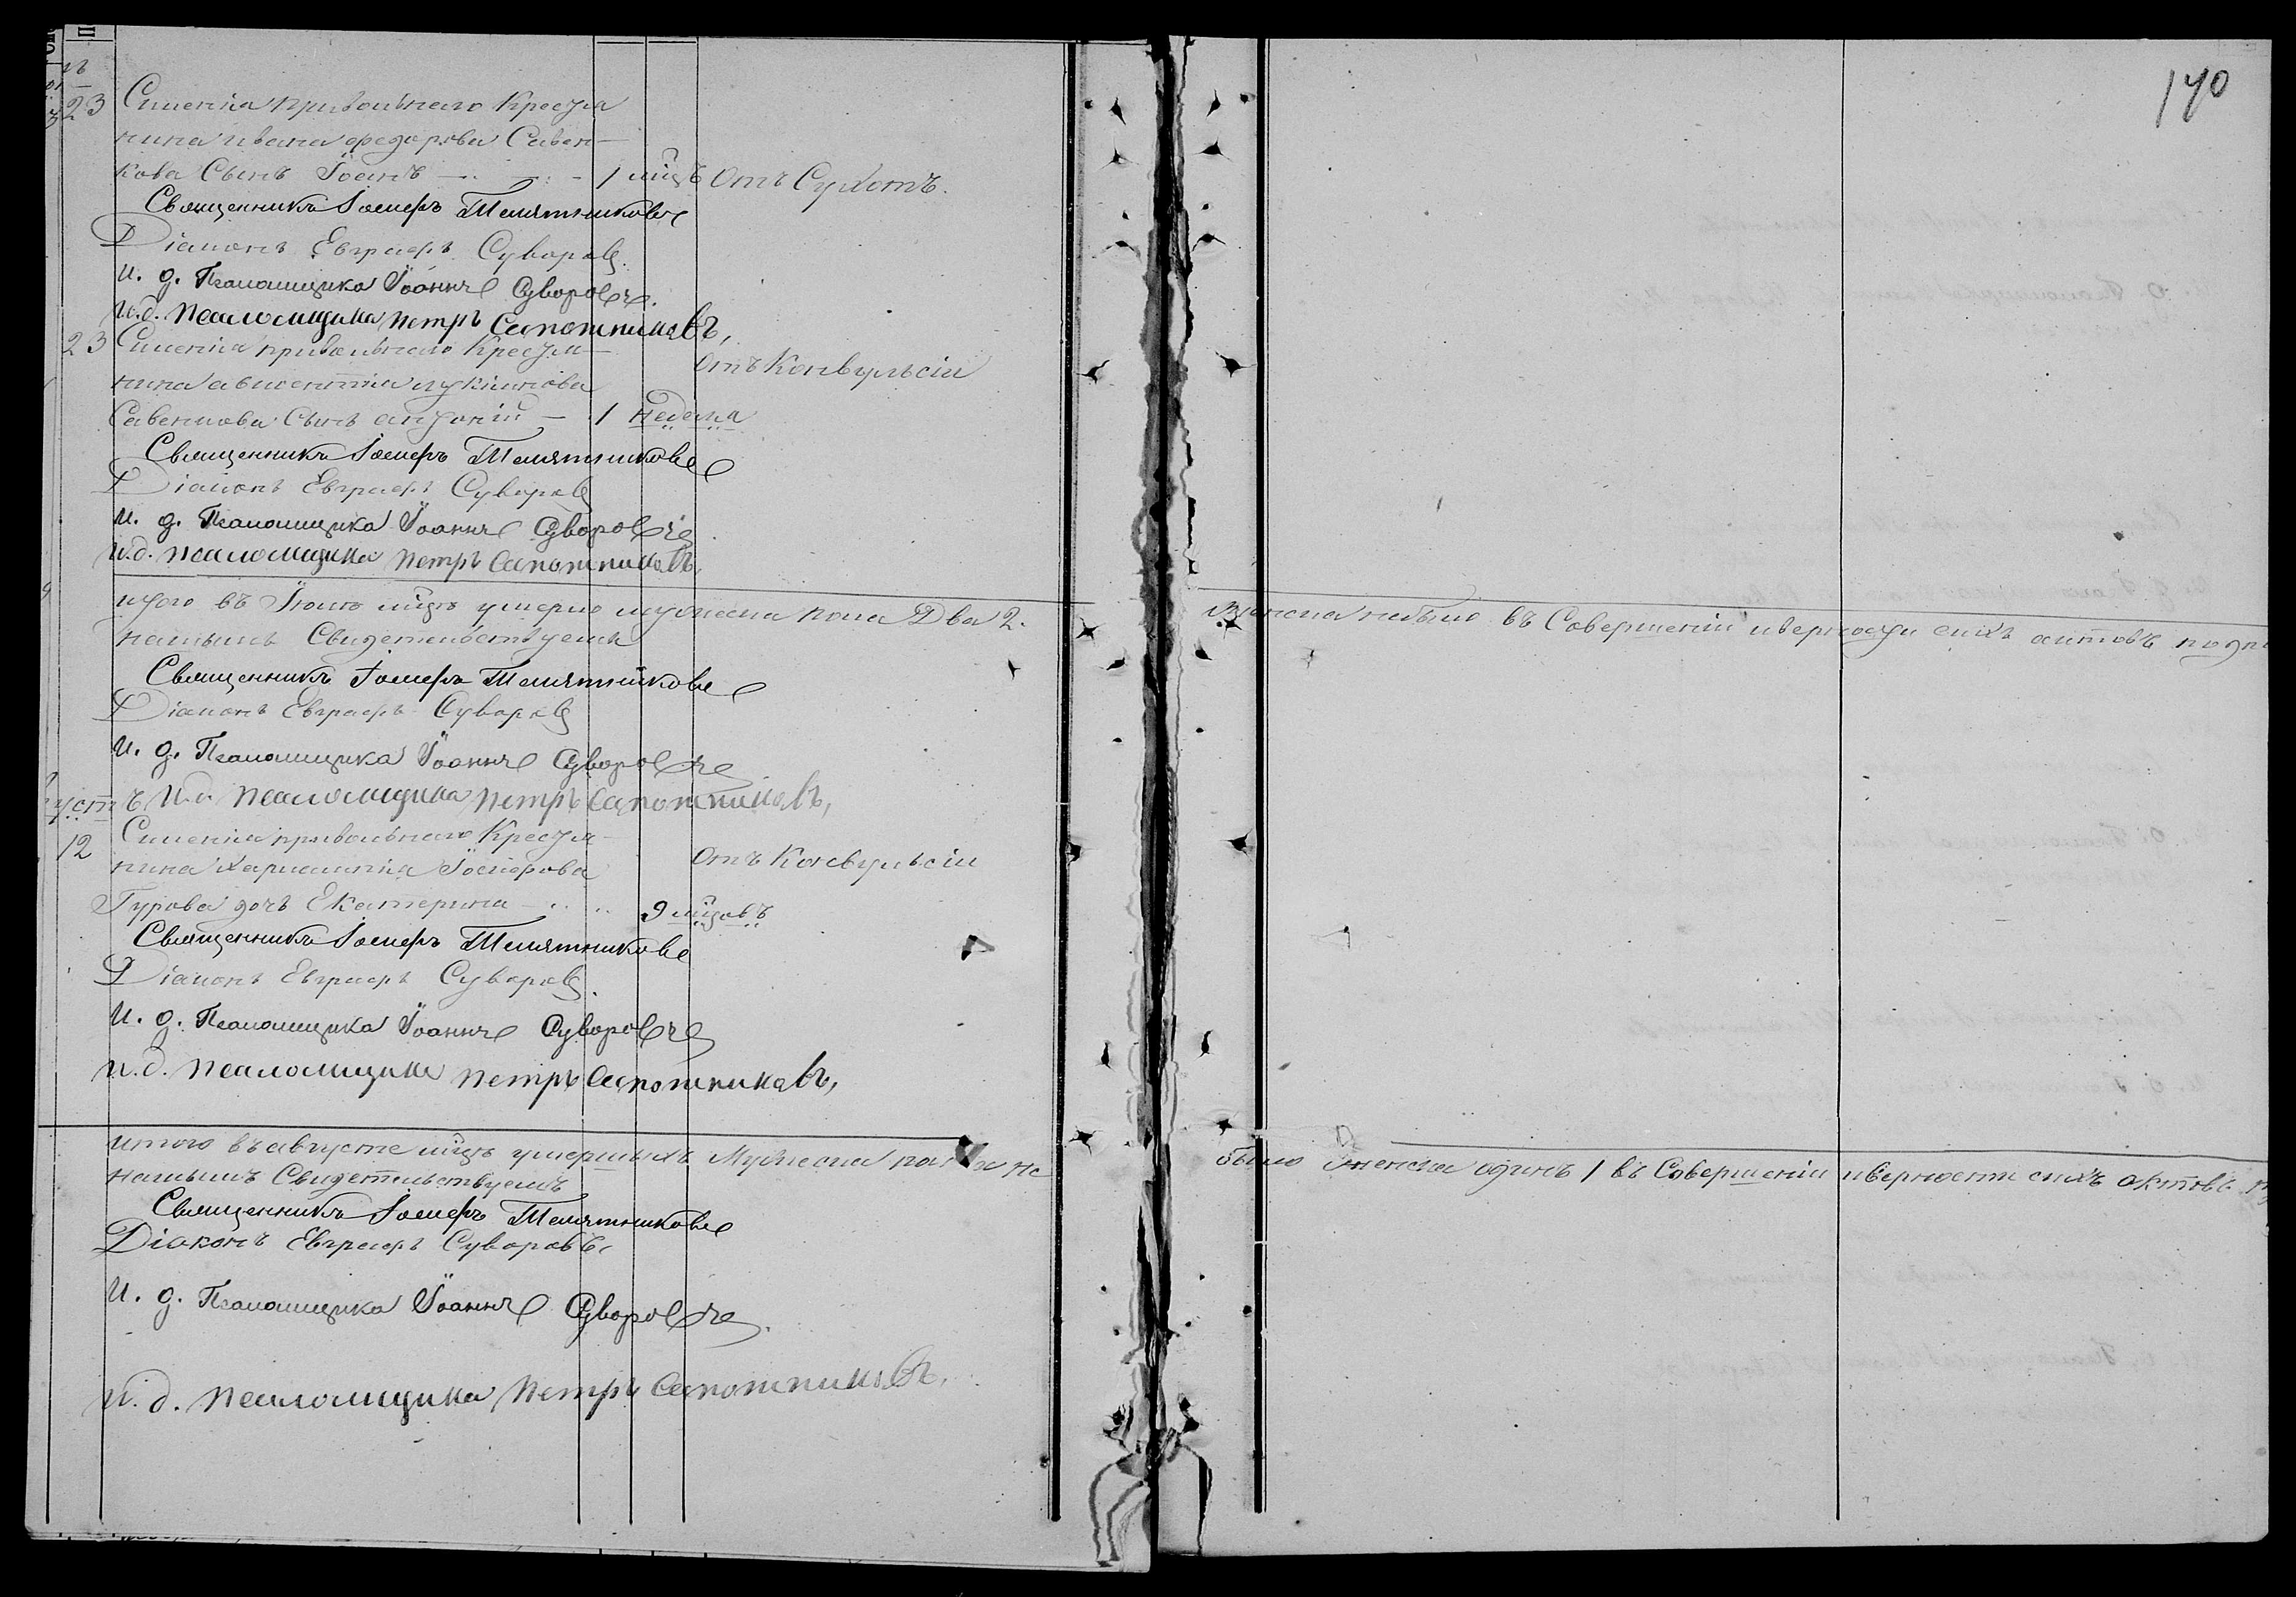 170
23 Сименiа привольнаго Крестья
нина Ивана федорова Савен-
кова Сынъ Іоанъ — 1 мцъ Отъ Сухотъ.
Священникъ Іосифъ Телятниковъ
Діаконъ Евграфъ Суворовъ
И. д. Псаломщика Іоаннъ Суворовъ.
И. д. псаломщика петръ Сапожниковъ,
23 привольнаго Крестья-
нина
Савенкова Сынъ антоній — 1 неделя
отъ Конвульсіи
Священникъ Іосифъ Телятниковъ
Діаконъ Евграфъ Суворовъ
И. д. Псаломщика Іоаннъ Суворовъ
И. д. псаломщика петръ Сапожниковъ,
итого въ Іюлѣ мцѣ умерло мужеска пола Два 2. женска небыло въ Совершеніи иверности сихъ актовъ подпи
нашимъ Свидетельствуемъ
Священникъ Іосифъ Телятниковъ
Діаконъ Евграфъ Суворовъ
И. д. Псаломщика Іоаннъ Суворовъ
И. д. псаломщика петръ Сапожниковъ,
12 привольнаго Крестья-
нина Іосифова
Гурова дочь Екатерина — 9 мцовъ
отъ Конвульсіи
Священникъ Іосифъ Телятниковъ
Діаконъ Евграфъ Суворовъ.
И. д. Псаломщика Іоаннъ Суворовъ
И. д. псаломщика петръ Сапожниковъ,
итого въ августе мцѣ умершихъ Мужеска пола не было женска одинъ 1 въ Совершеніи иверности сихъ актовъ
нашимъ Свидетельствуемъ
Священникъ Іосифъ Телятниковъ
Діаконъ Евграфъ Суворовъ
И. д. Псаломщика Іоаннъ Суворовъ.
И. д. псаломщика петръ Сапожниковъ.